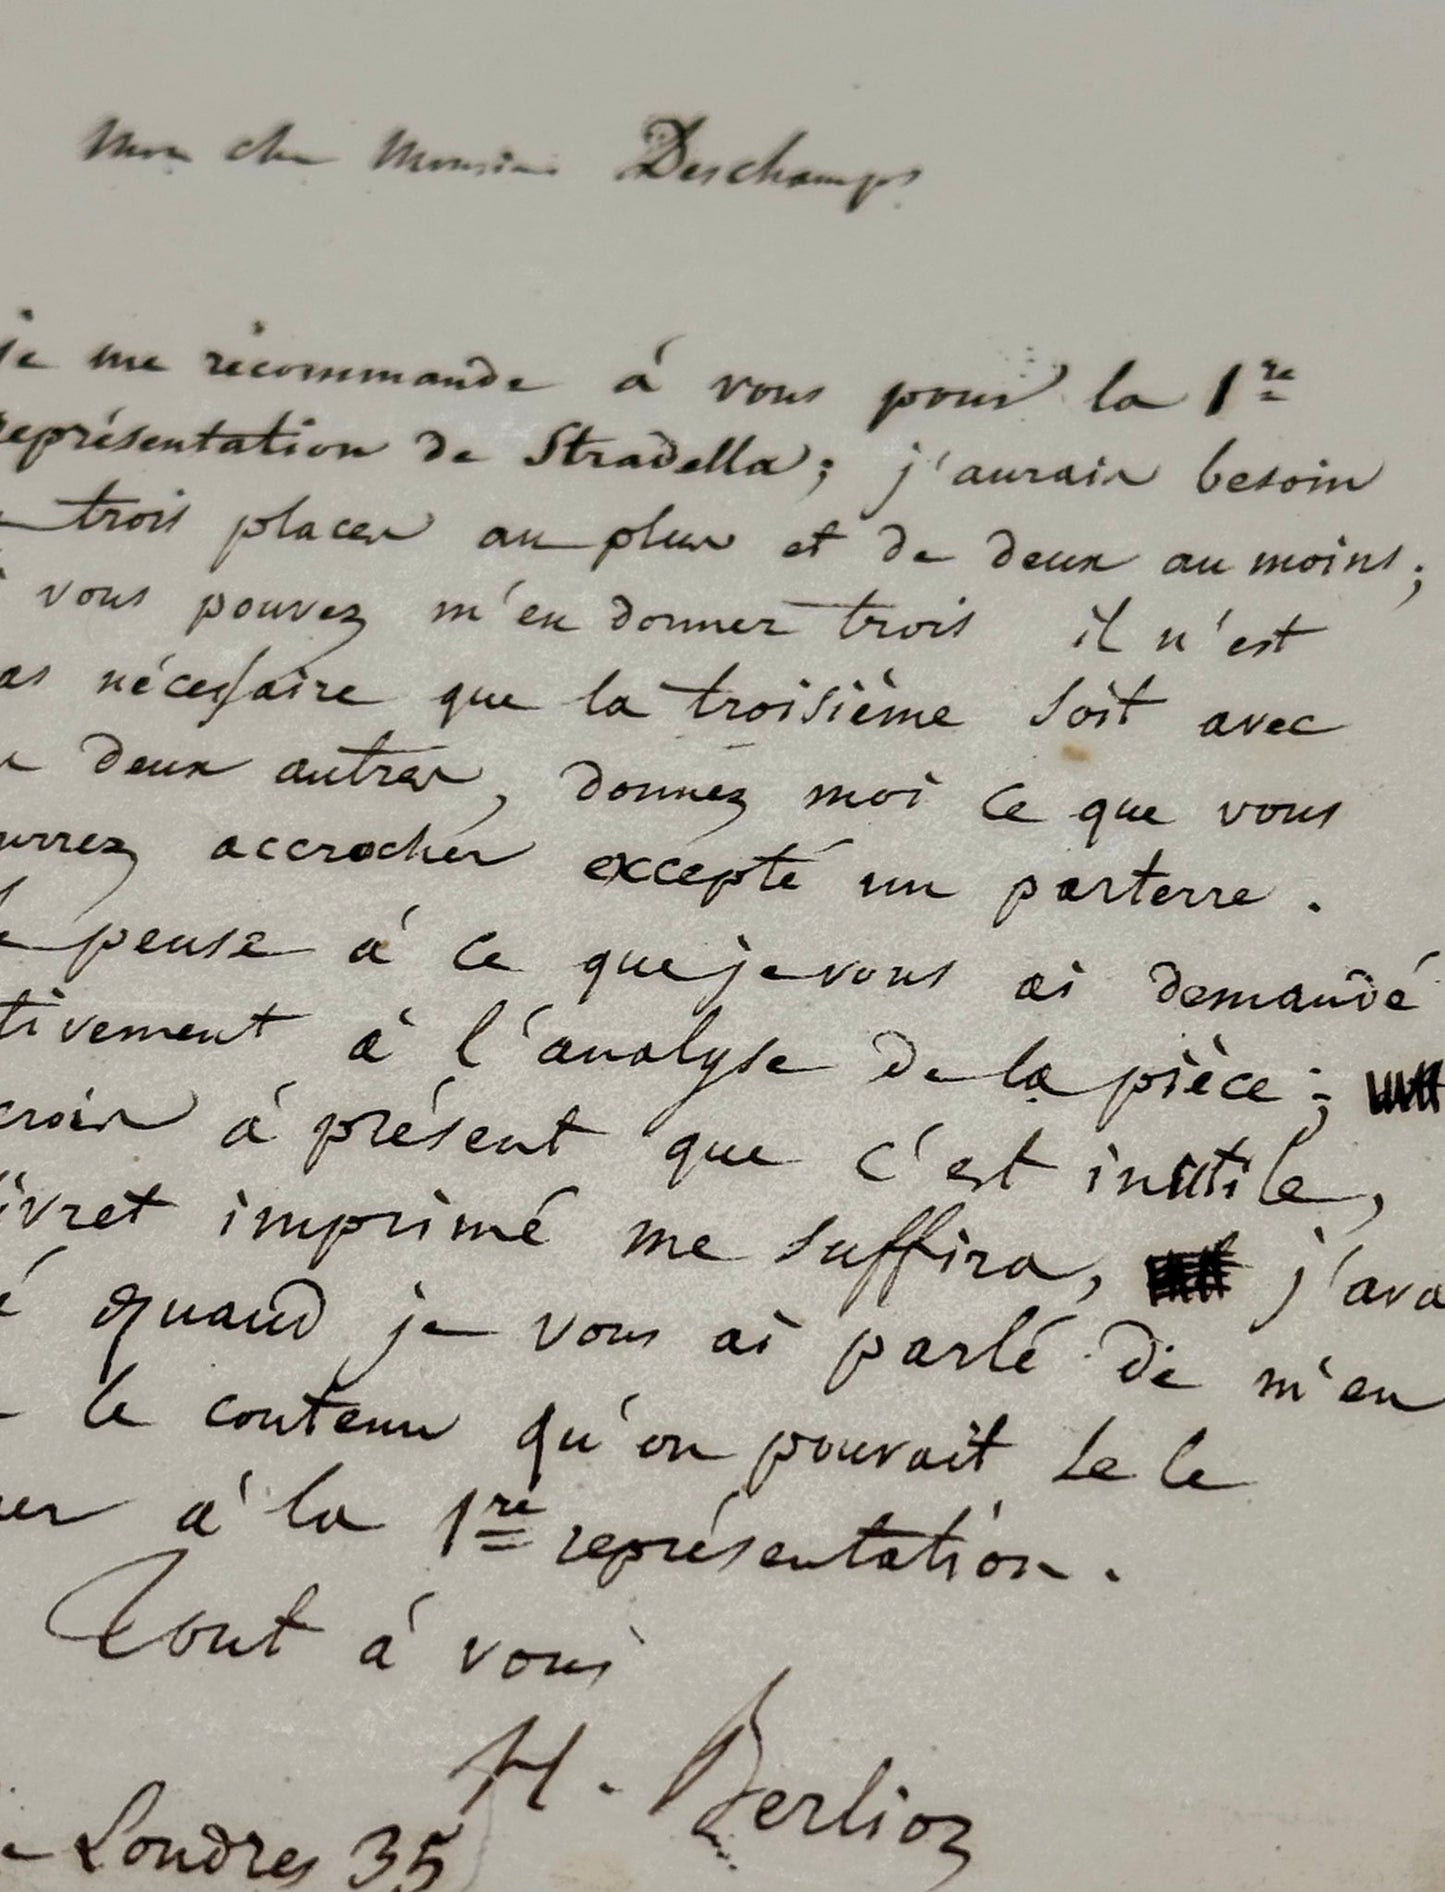 Mon cher Monsieur Deschamps
je me recommande à vous pour la 1re
représentation de Stradella; j'aurais besoin
trois places au plus et de deux au moins;
vous pouvez m'en donner trois il n'est
as nécessaire que la troisième soit avec
deux autres, donnez moi ce que vous
urrez accrocher excepté un parterre.
pense à ce que je vous ai demandé
tivement à l'analyse de la pièce;
crois à présent que c'est inutile,
ivret imprimé me suffira, j'ava
quand je vous ai parlé de m'en
le contenu qu'on pouvait se le
er à la 1re représentation.
Tout à vous
H. Berlioz
Londres 35